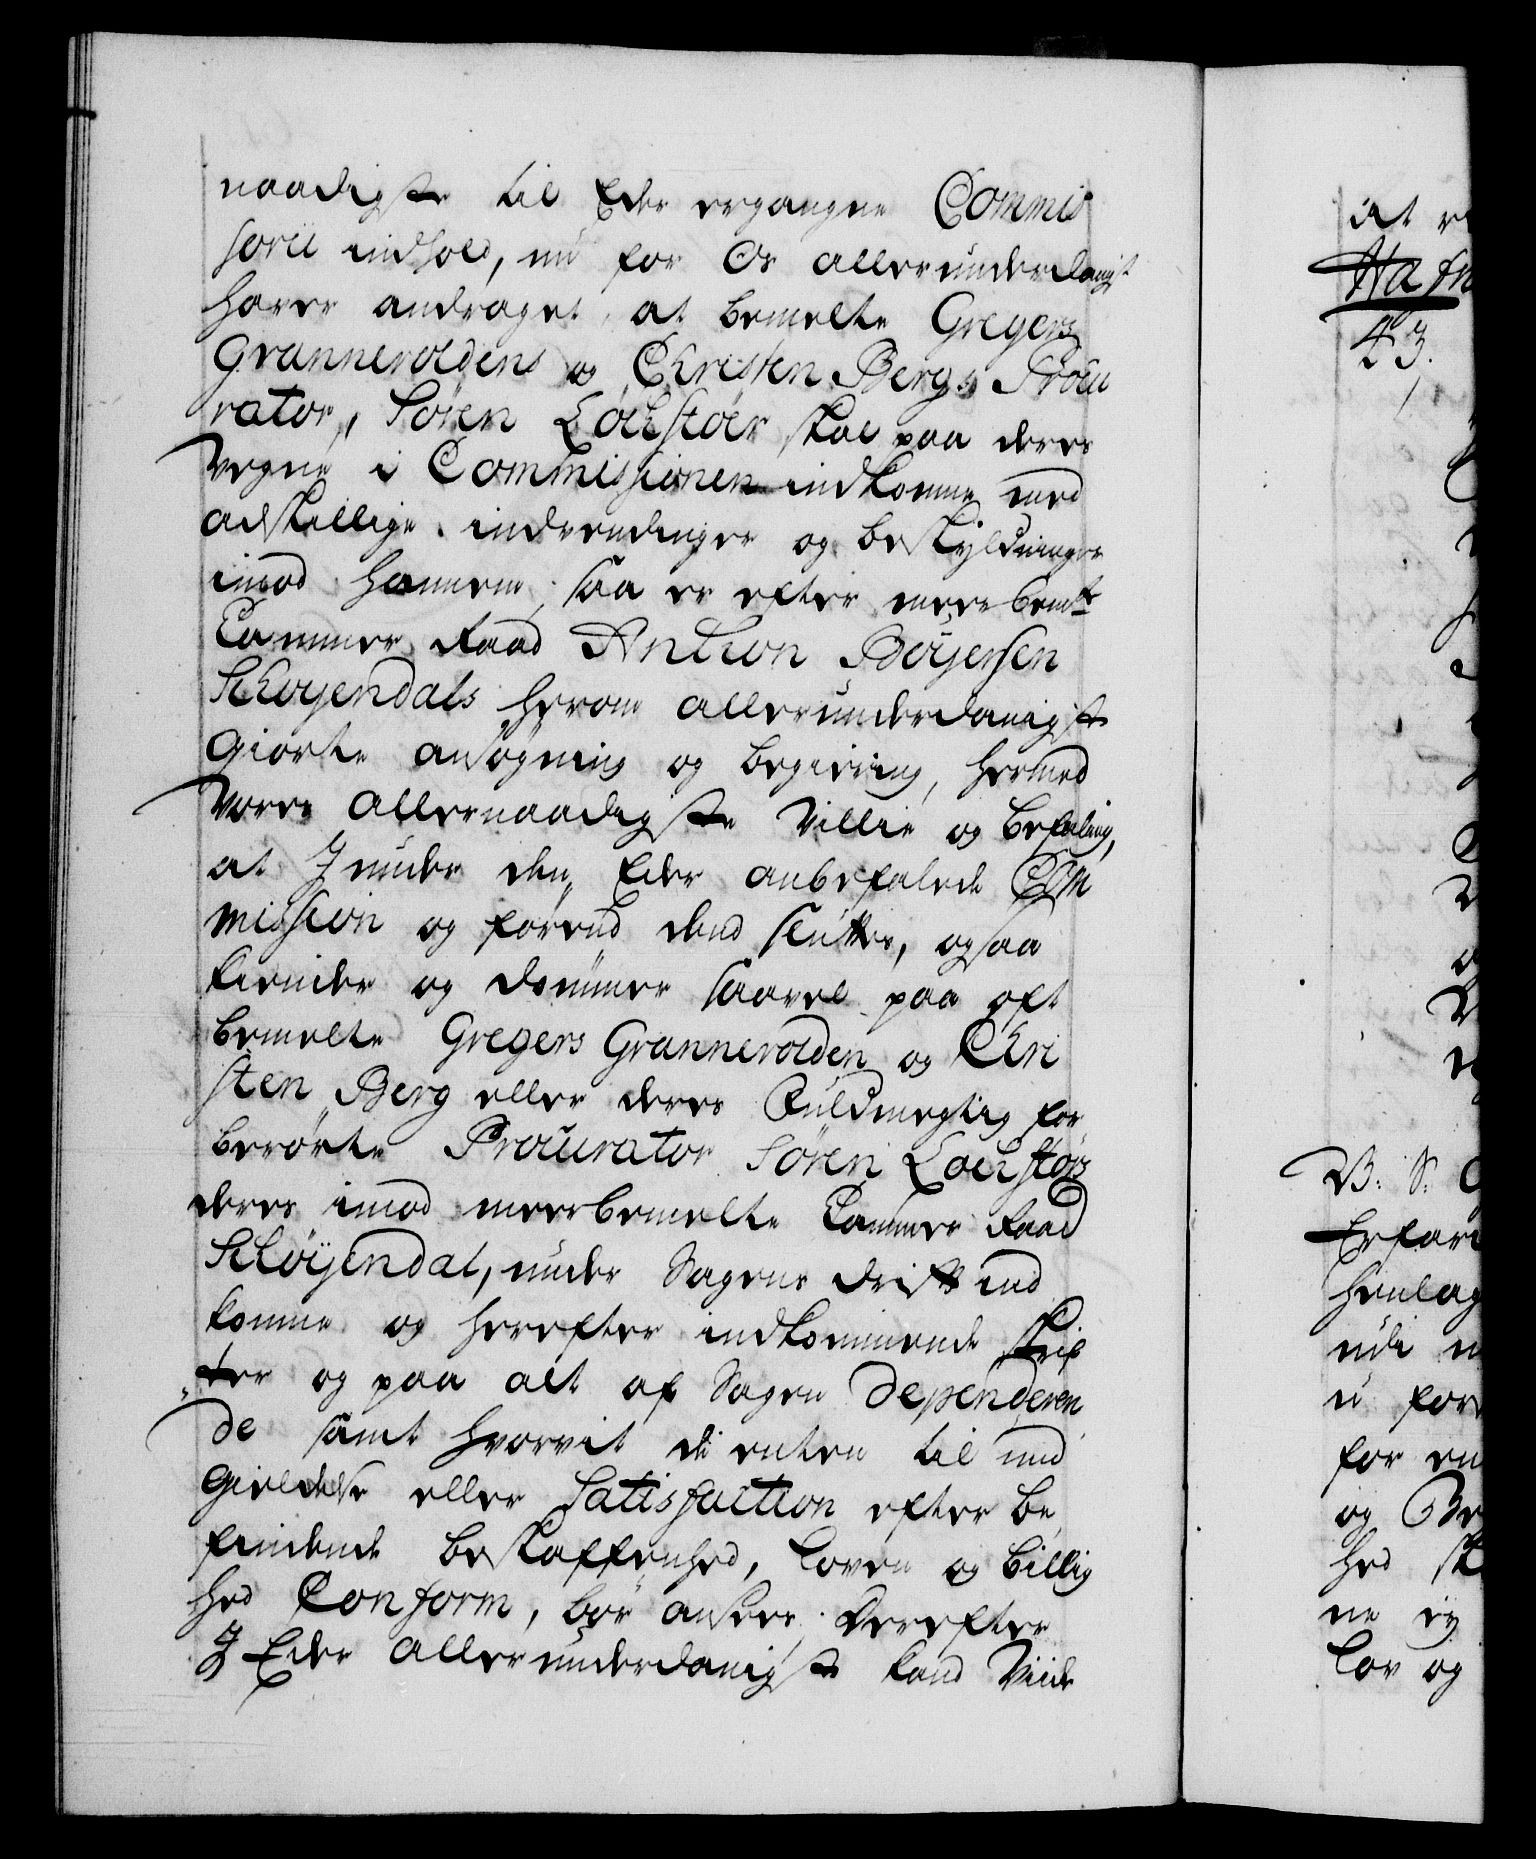 naadigste til Eder ergangne Commis
sorii indhold, nu for Os allerunderdanigst
haver andraget, at bemelte Gregers
Granneroldens og Christen Bergs Procu
rator, Søren Lochstöer skal paa deres
vegne i Commissionen indkomme med
adskillige indvendinger og beskyldninger
imod hannem, saa er efter meerbemte
Cammer Raad Anthon Böyersen
Schöyendals herom allerunderdanigste
giorte ansøgning og begiering, hermed
Vores allernaadigste Villie og befaling,
at I under den Eder anbefalede Com
mission og førend dend sluttes, ogsaa
kiender og dømmer saavel paa oft
bemelte Gregers Grannerolden og Chri
sten Berg eller deres Fuldmegtig for
berørte Procurator Søren Lochstörs
deres imod meerbemelte Cammer Raad
Schöyendal, under Sagens drift ind
komne og herefter indkommende skrif
ter og paa alt af Sagen dependeren
de samt hvorvit de enten til und
gieldelse eller Satisfaction efter be
findende beskaffenhed, Loven og billig
hed Conform, bør ansees. Derefter
I Eder allerunderdanigste kand Viide
at
Hafn
43.
V: S: G
Erfar
henlag
udi
for
for en
og Be
hed sk
ne ey
Lov og